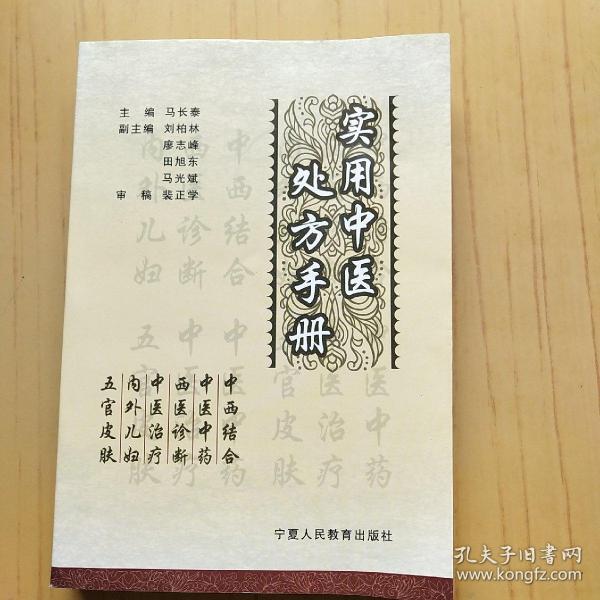 主 编 马长泰
副主编 刘柏林
廖志峰
田旭东
马光斌
审 稿 裴正学
实用中医
处方手册
中西结合
中医中药
西医诊断
中医治疗
内外儿妇
五官皮肤
宁夏人民教育出版社
孔夫子旧书网
www.kongfz.com